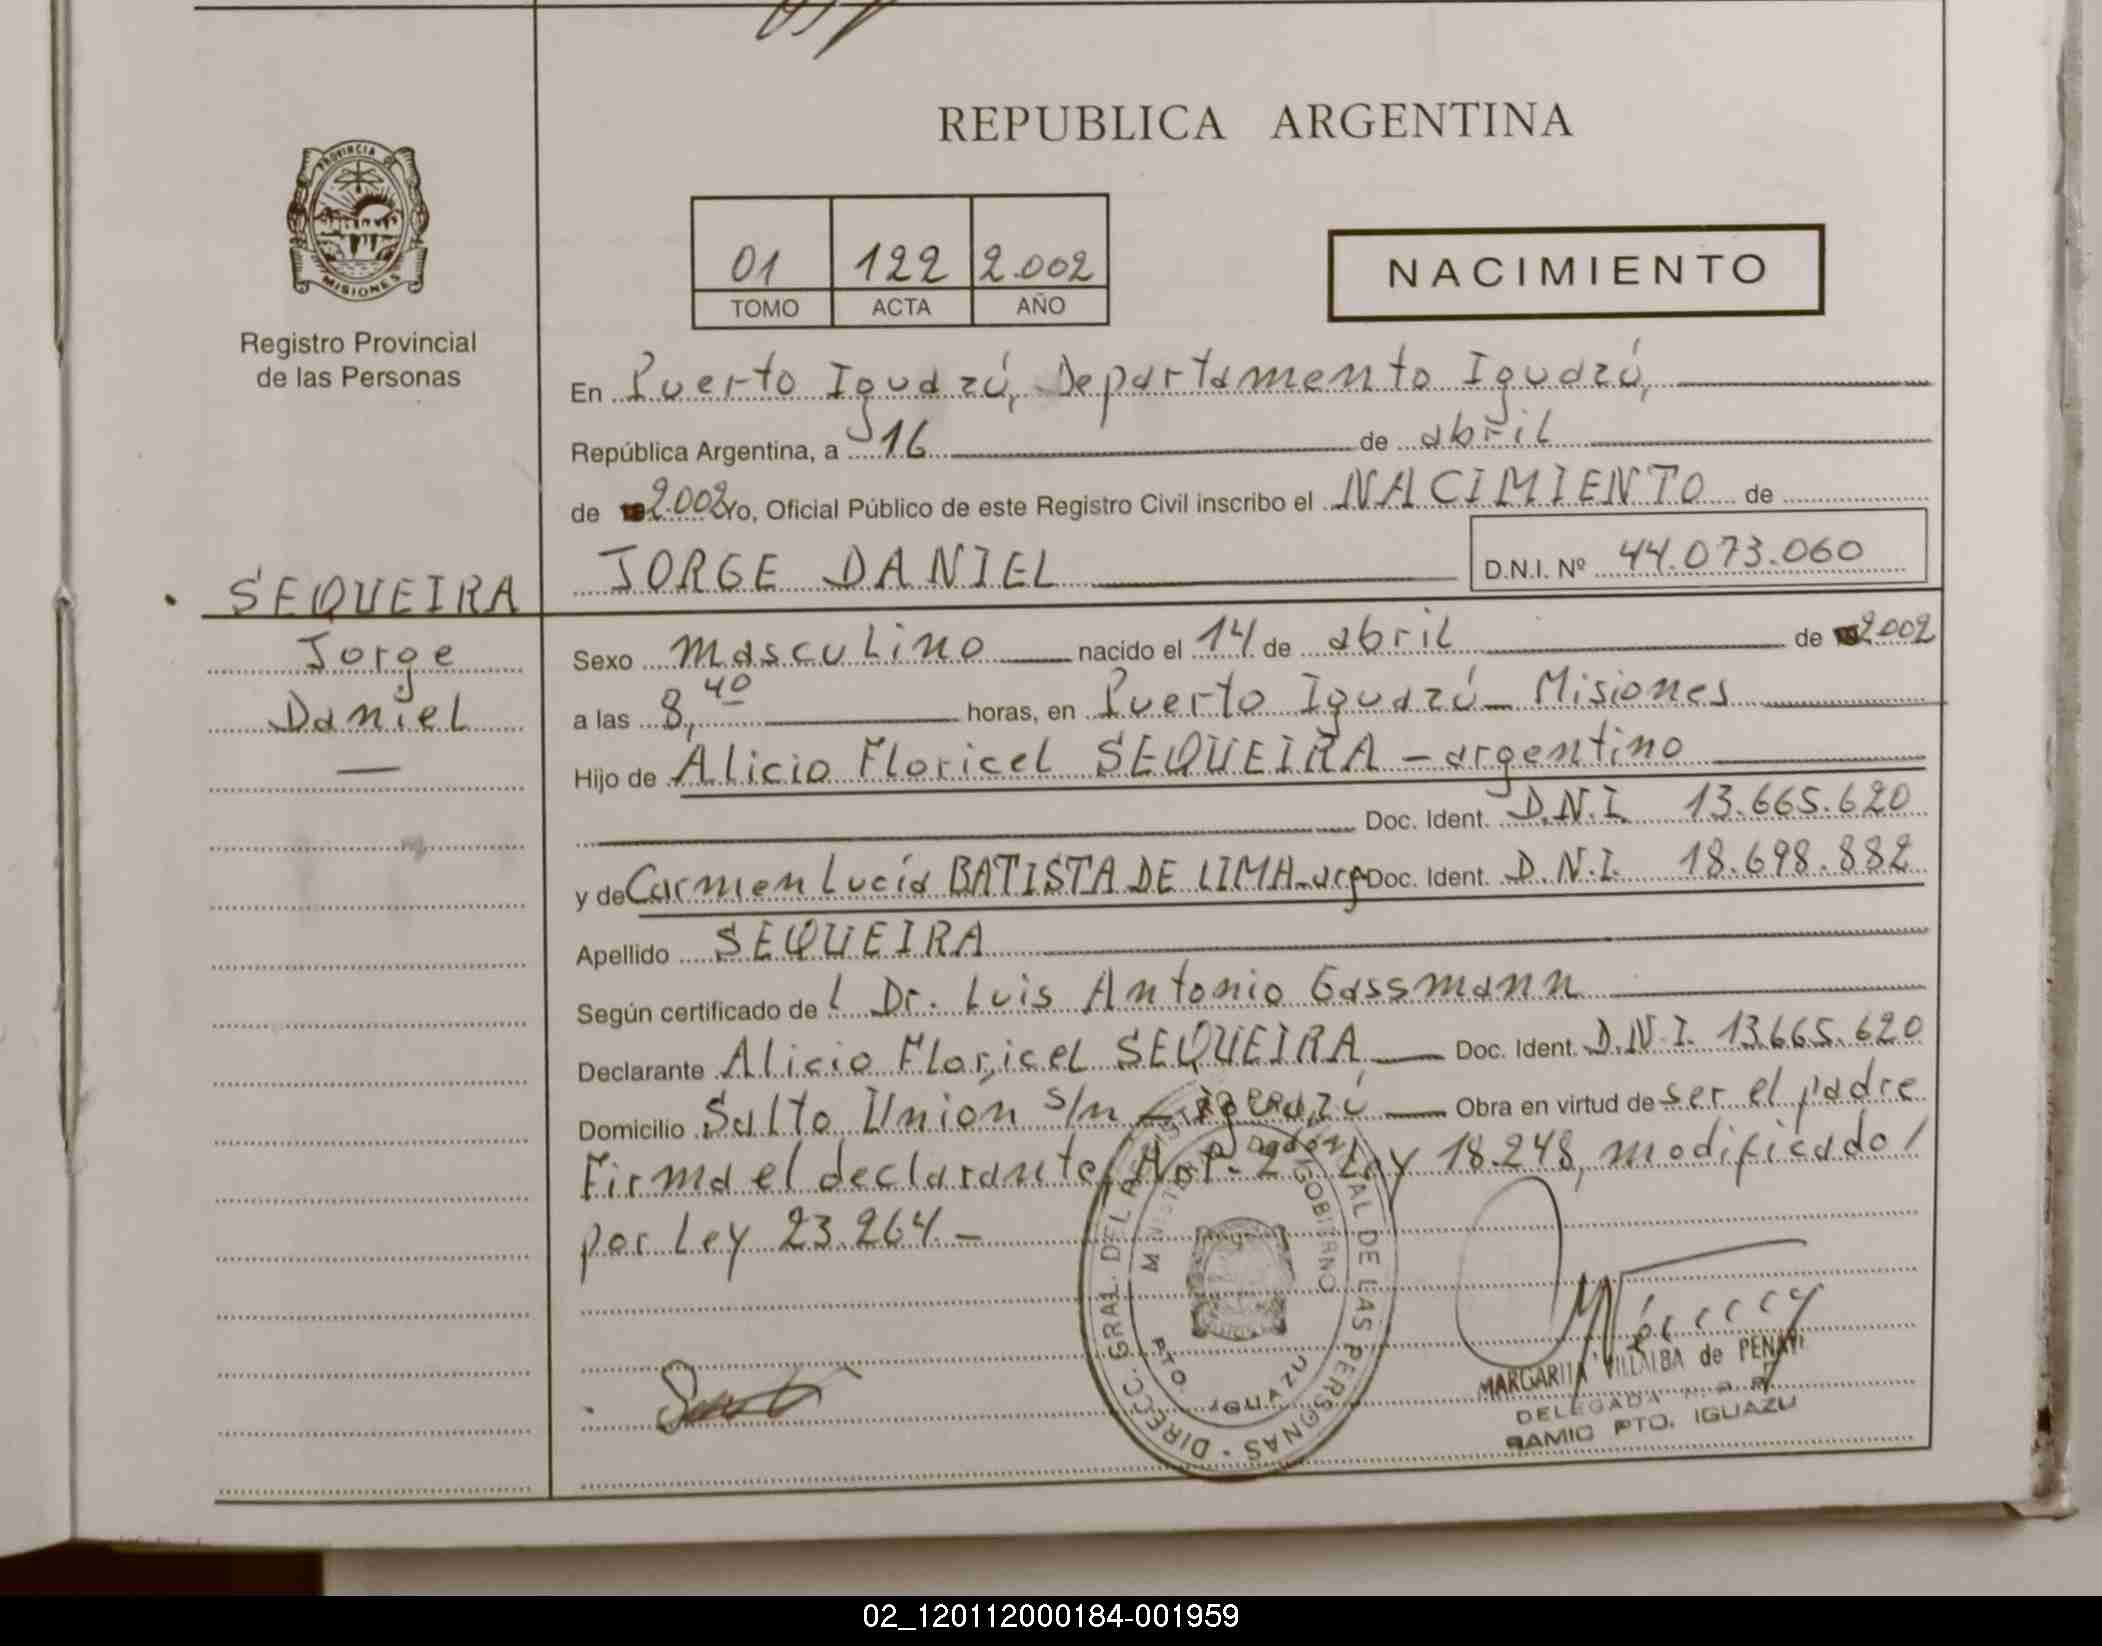 REPUBLICA ARGENTINA
PROVINCIA DE
MISIONES
Registro Provincial
de las Personas
01 122 2.002
TOMO ACTA AÑO
NACIMIENTO
En Puerto Iguazú, Departamento Iguazú,
República Argentina, a 16 de abril
de 2.002 Yo, Oficial Público de este Registro Civil inscribo el NACIMIENTO de
JORGE DANIEL D.N.I. Nº 44.073.060
SEQUEIRA
Jorge
Daniel
Sexo masculino nacido el 14 de abril de 2002
a las 8,40 horas, en Puerto Iguazú - Misiones
Hijo de Alicio Floricel SEQUEIRA - argentino
Doc. Ident. D.N.I. 13.665.620
y de Carmen Lucía BATISTA DE LIMA - arg Doc. Ident. D.N.I. 18.698.882
Apellido SEQUEIRA
Según certificado de l Dr. Luis Antonio Gassmann
Declarante Alicio Floricel SEQUEIRA Doc. Ident. D.N.I. 13.665.620
Domicilio Salto Union s/n - Iguazú Obra en virtud de ser el padre
Firma el declarante, Ley 18.248, modificado /
por Ley 23.264.-
DIRECC. GRAL DEL DE LAS PERSONAS
GOBIERNO
PTO IGUAZU
MARGARITA VILLALBA de PENAYO
DELEGADA
RAMIC PTO. IGUAZU
02_120112000184-001959